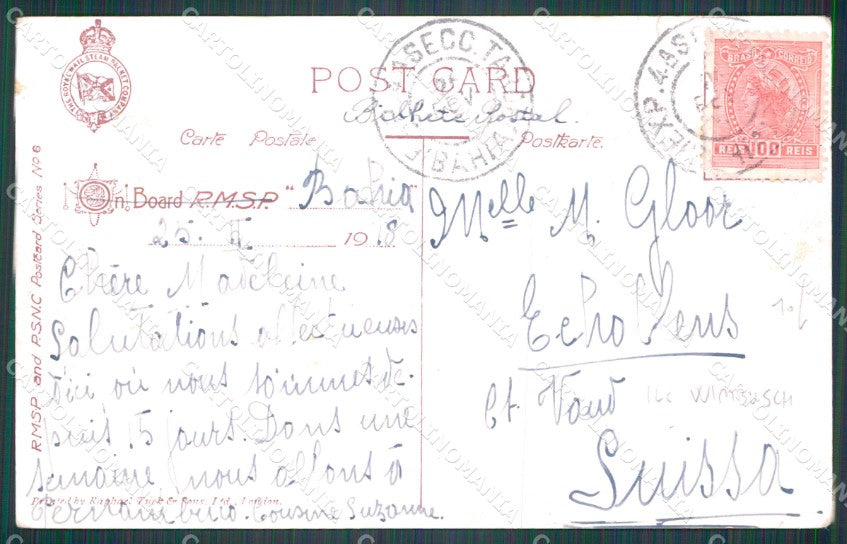 THE ROYAL MAIL STEAM PACKET COMPANY
POST CARD
Bilhete Postal
Carte Postale
Postkarte
On Board R.M.S.P. "Bahia
25. II. 1918
Chère Madeleine
Salutations affectueuses
d'ici où nous sommes de-
puis 15 jours. Dans une
semaine nous allons à
Pernambuco. Cousine Suzanne.
Printed by Raphael Tuck & Sons, Ltd., London.
RMSP and P.S.N.C Postcard Series No 6
BRASIL CORREIO
REIS 100 REIS
4A SECC.
BAHIA
Melle M. Gloor
Echallens
Ct. Vaud
Suissa
CARTOLINOMANIA